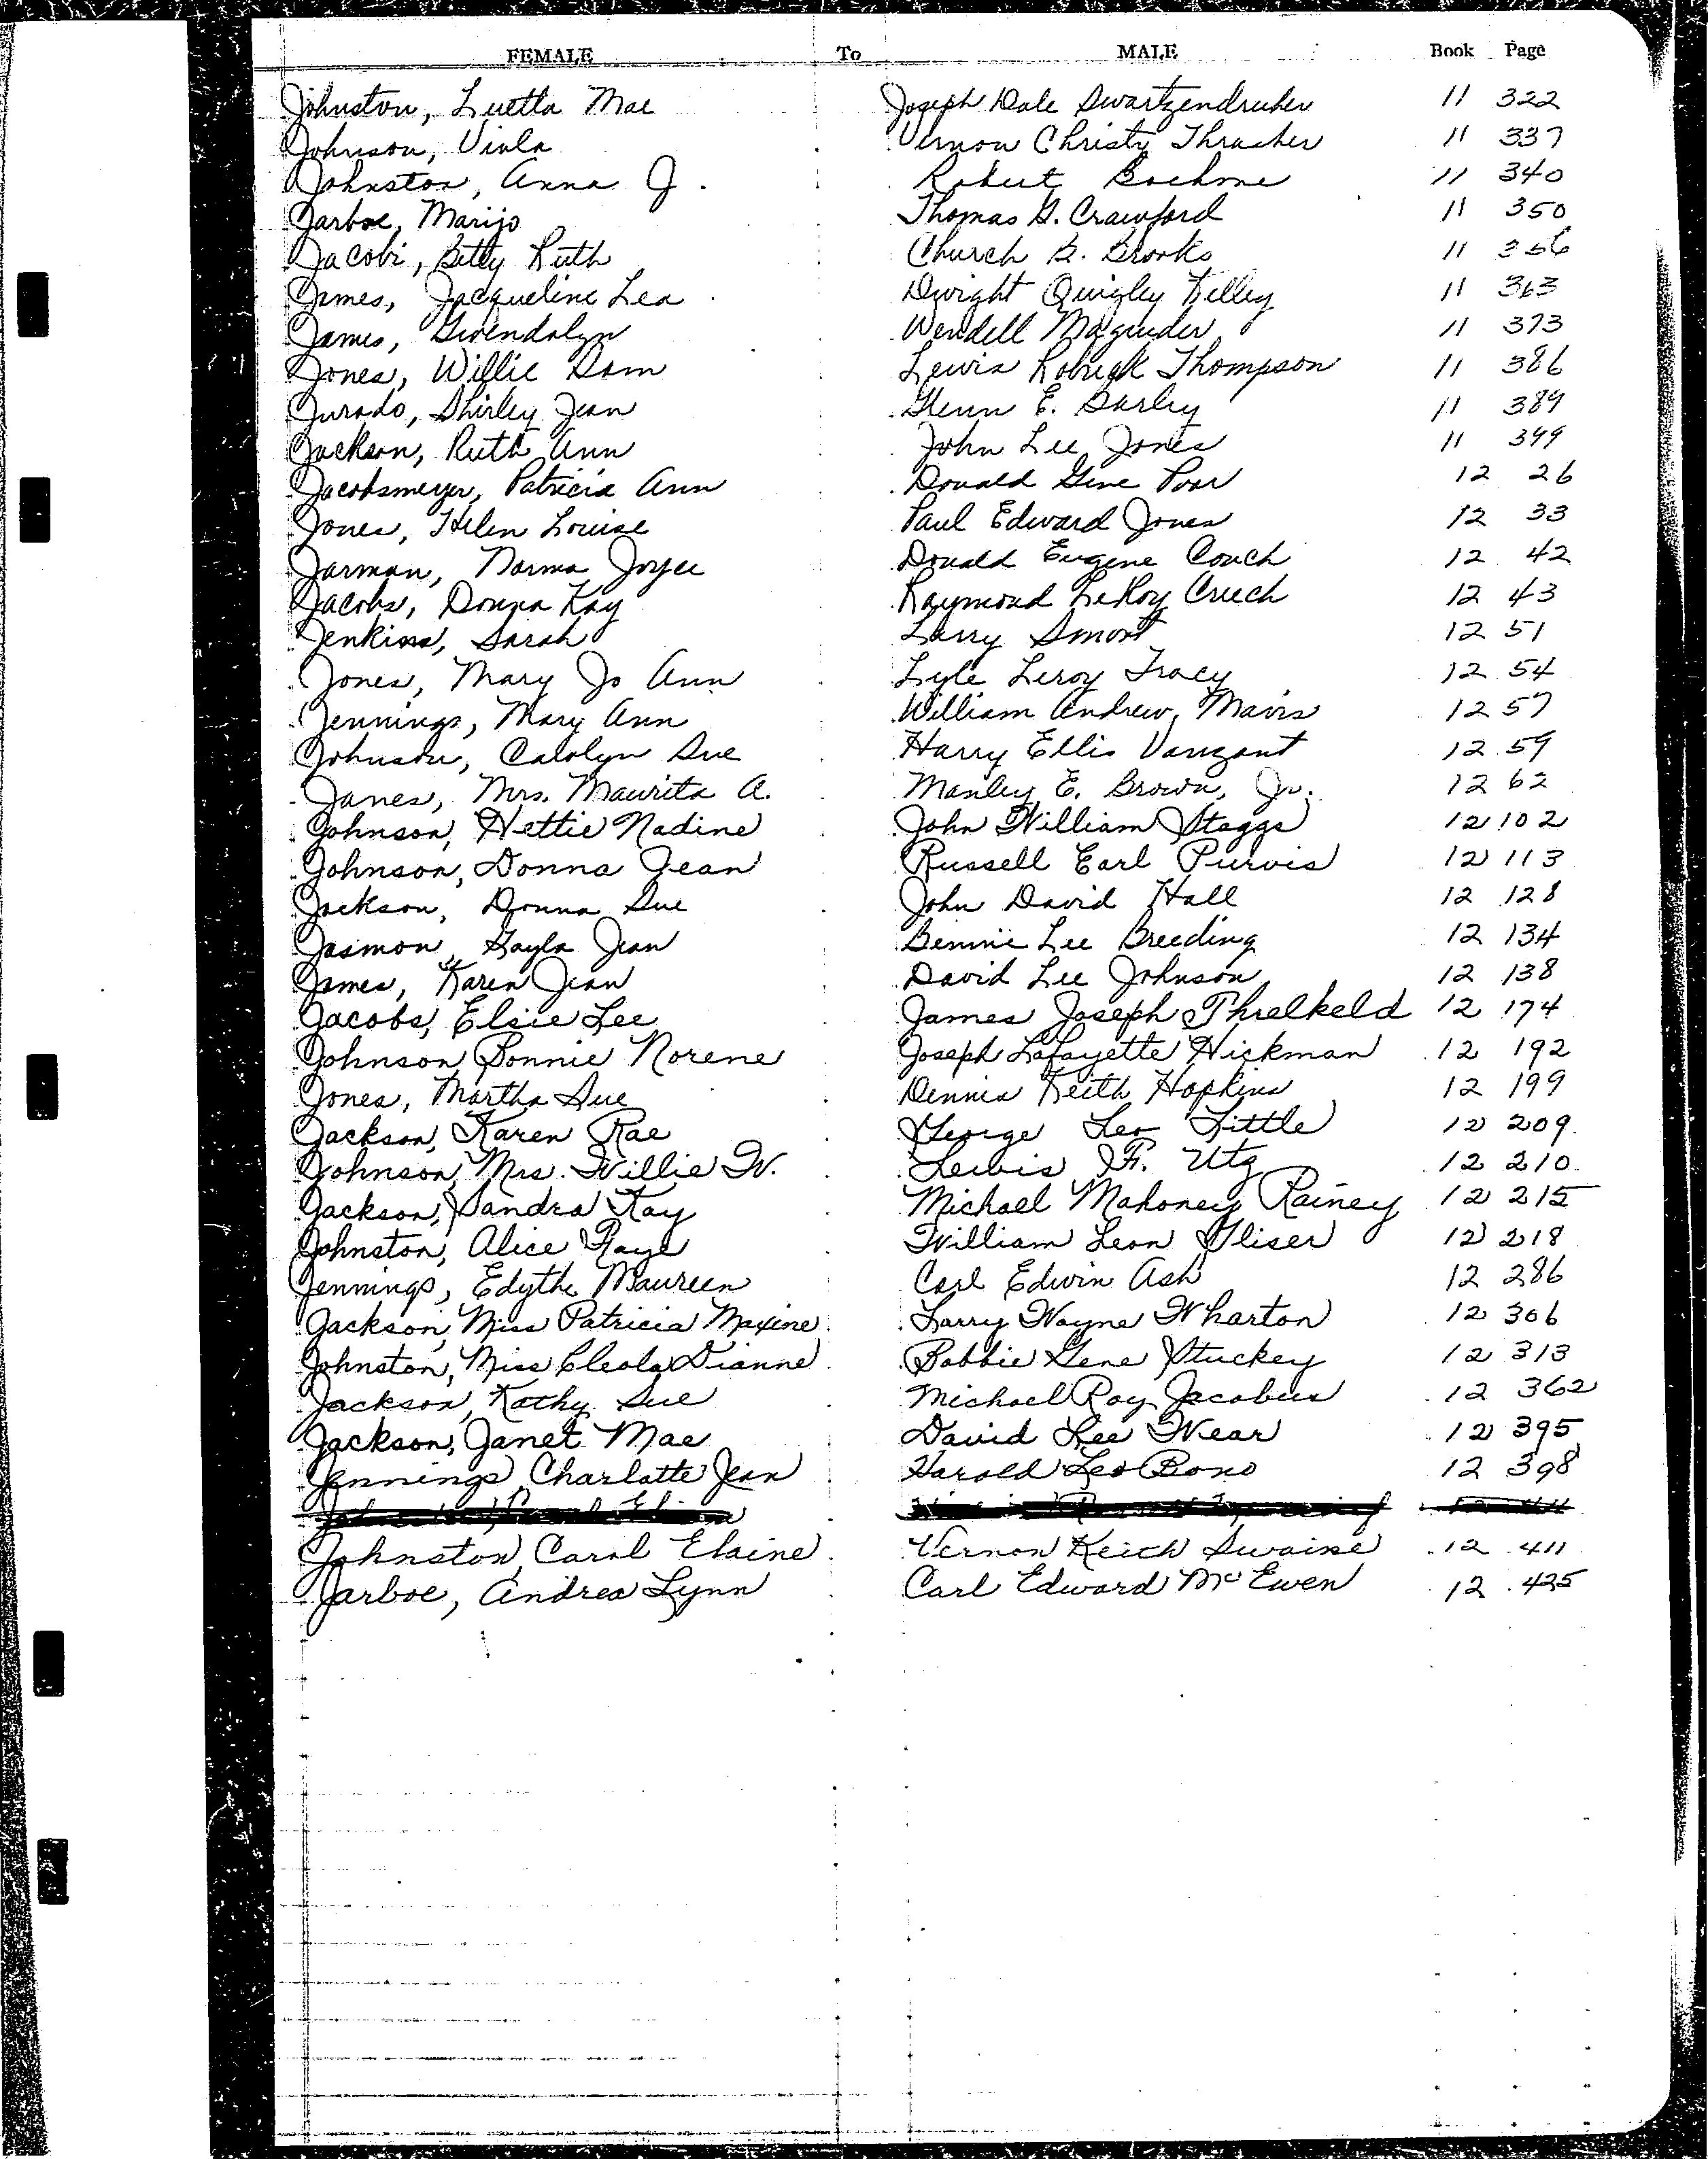 FEMALE To MALE Book Page
Johnston, Luetta Mae Joseph Dale Swartzendruber 11 322
Johnson, Viola Vernon Christy Thrasher 11 337
Johnston, Anna J. Robert Boehme 11 340
Jarboe, Marijo Thomas G. Crawford 11 350
Jacobi, Betty Ruth Church B. Brooks 11 356
James, Jacqueline Lea Dwight Quigley Kelley 11 363
James, Gwendolyn Wendell Magruder 11 373
Jones, Willie Dom Lewis Thompson 11 386
Jurado, Shirley Jean Glenn E. Darley 11 389
Jackson, Ruth Ann John Lee Jones 11 399
Jacobsmeyer, Patricia Ann Donald Gene Poor 12 26
Jones, Helen Louise Paul Edward Jones 12 33
Jarman, Norma Joyce Donald Eugene Couch 12 42
Jacobs, Donna Kay Raymond LeRoy Creech 12 43
Jenkins, Sarah Larry Smart 12 51
Jones, Mary Jo Ann Lyle Leroy Tracy 12 54
Jennings, Mary Ann William Andrew Mavis 12 57
Johnson, Carolyn Sue Harry Ellis Vanzant 12 59
Janes, Mrs. Maurita A. Manley E. Brown, Jr. 12 62
Johnson, Hettie Nadine John William Staggs 12 102
Johnson, Donna Jean Russell Earl Purvis 12 113
Jackson, Donna Sue John David Hall 12 128
Jasmon, Gayla Jean Bennie Lee Breeding 12 134
James, Karen Jean David Lee Johnson 12 138
Jacobs, Elsie Lee James Joseph Threlkeld 12 174
Johnson, Bonnie Norene Joseph Lafayette Hickman 12 192
Jones, Martha Sue Dennis Keith Hopkins 12 199
Jackson, Karen Rae George Leo Little 12 209
Johnson, Mrs. Willie W. Lewis F. Utz 12 210
Jackson, Sandra Kay Michael Mahoney Rainey 12 215
Johnston, Alice Faye William Leon Gliser 12 218
Jennings, Edythe Maureen Carl Edwin Ash 12 286
Jackson, Miss Patricia Maxine Larry Wayne Wharton 12 306
Johnston, Miss Cleola Dianne Bobbie Gene Stuckey 12 313
Jackson, Kathy Sue Michael Ray Jacobus 12 362
Jackson, Janet Mae David Lee Wear 12 395
Jennings, Charlotte Jean Harold Leo Bono 12 398
Johnston, Carol Elaine Vernon Keith Swaine 12 411
Jarboe, Andrea Lynn Carl Edward McEwen 12 425